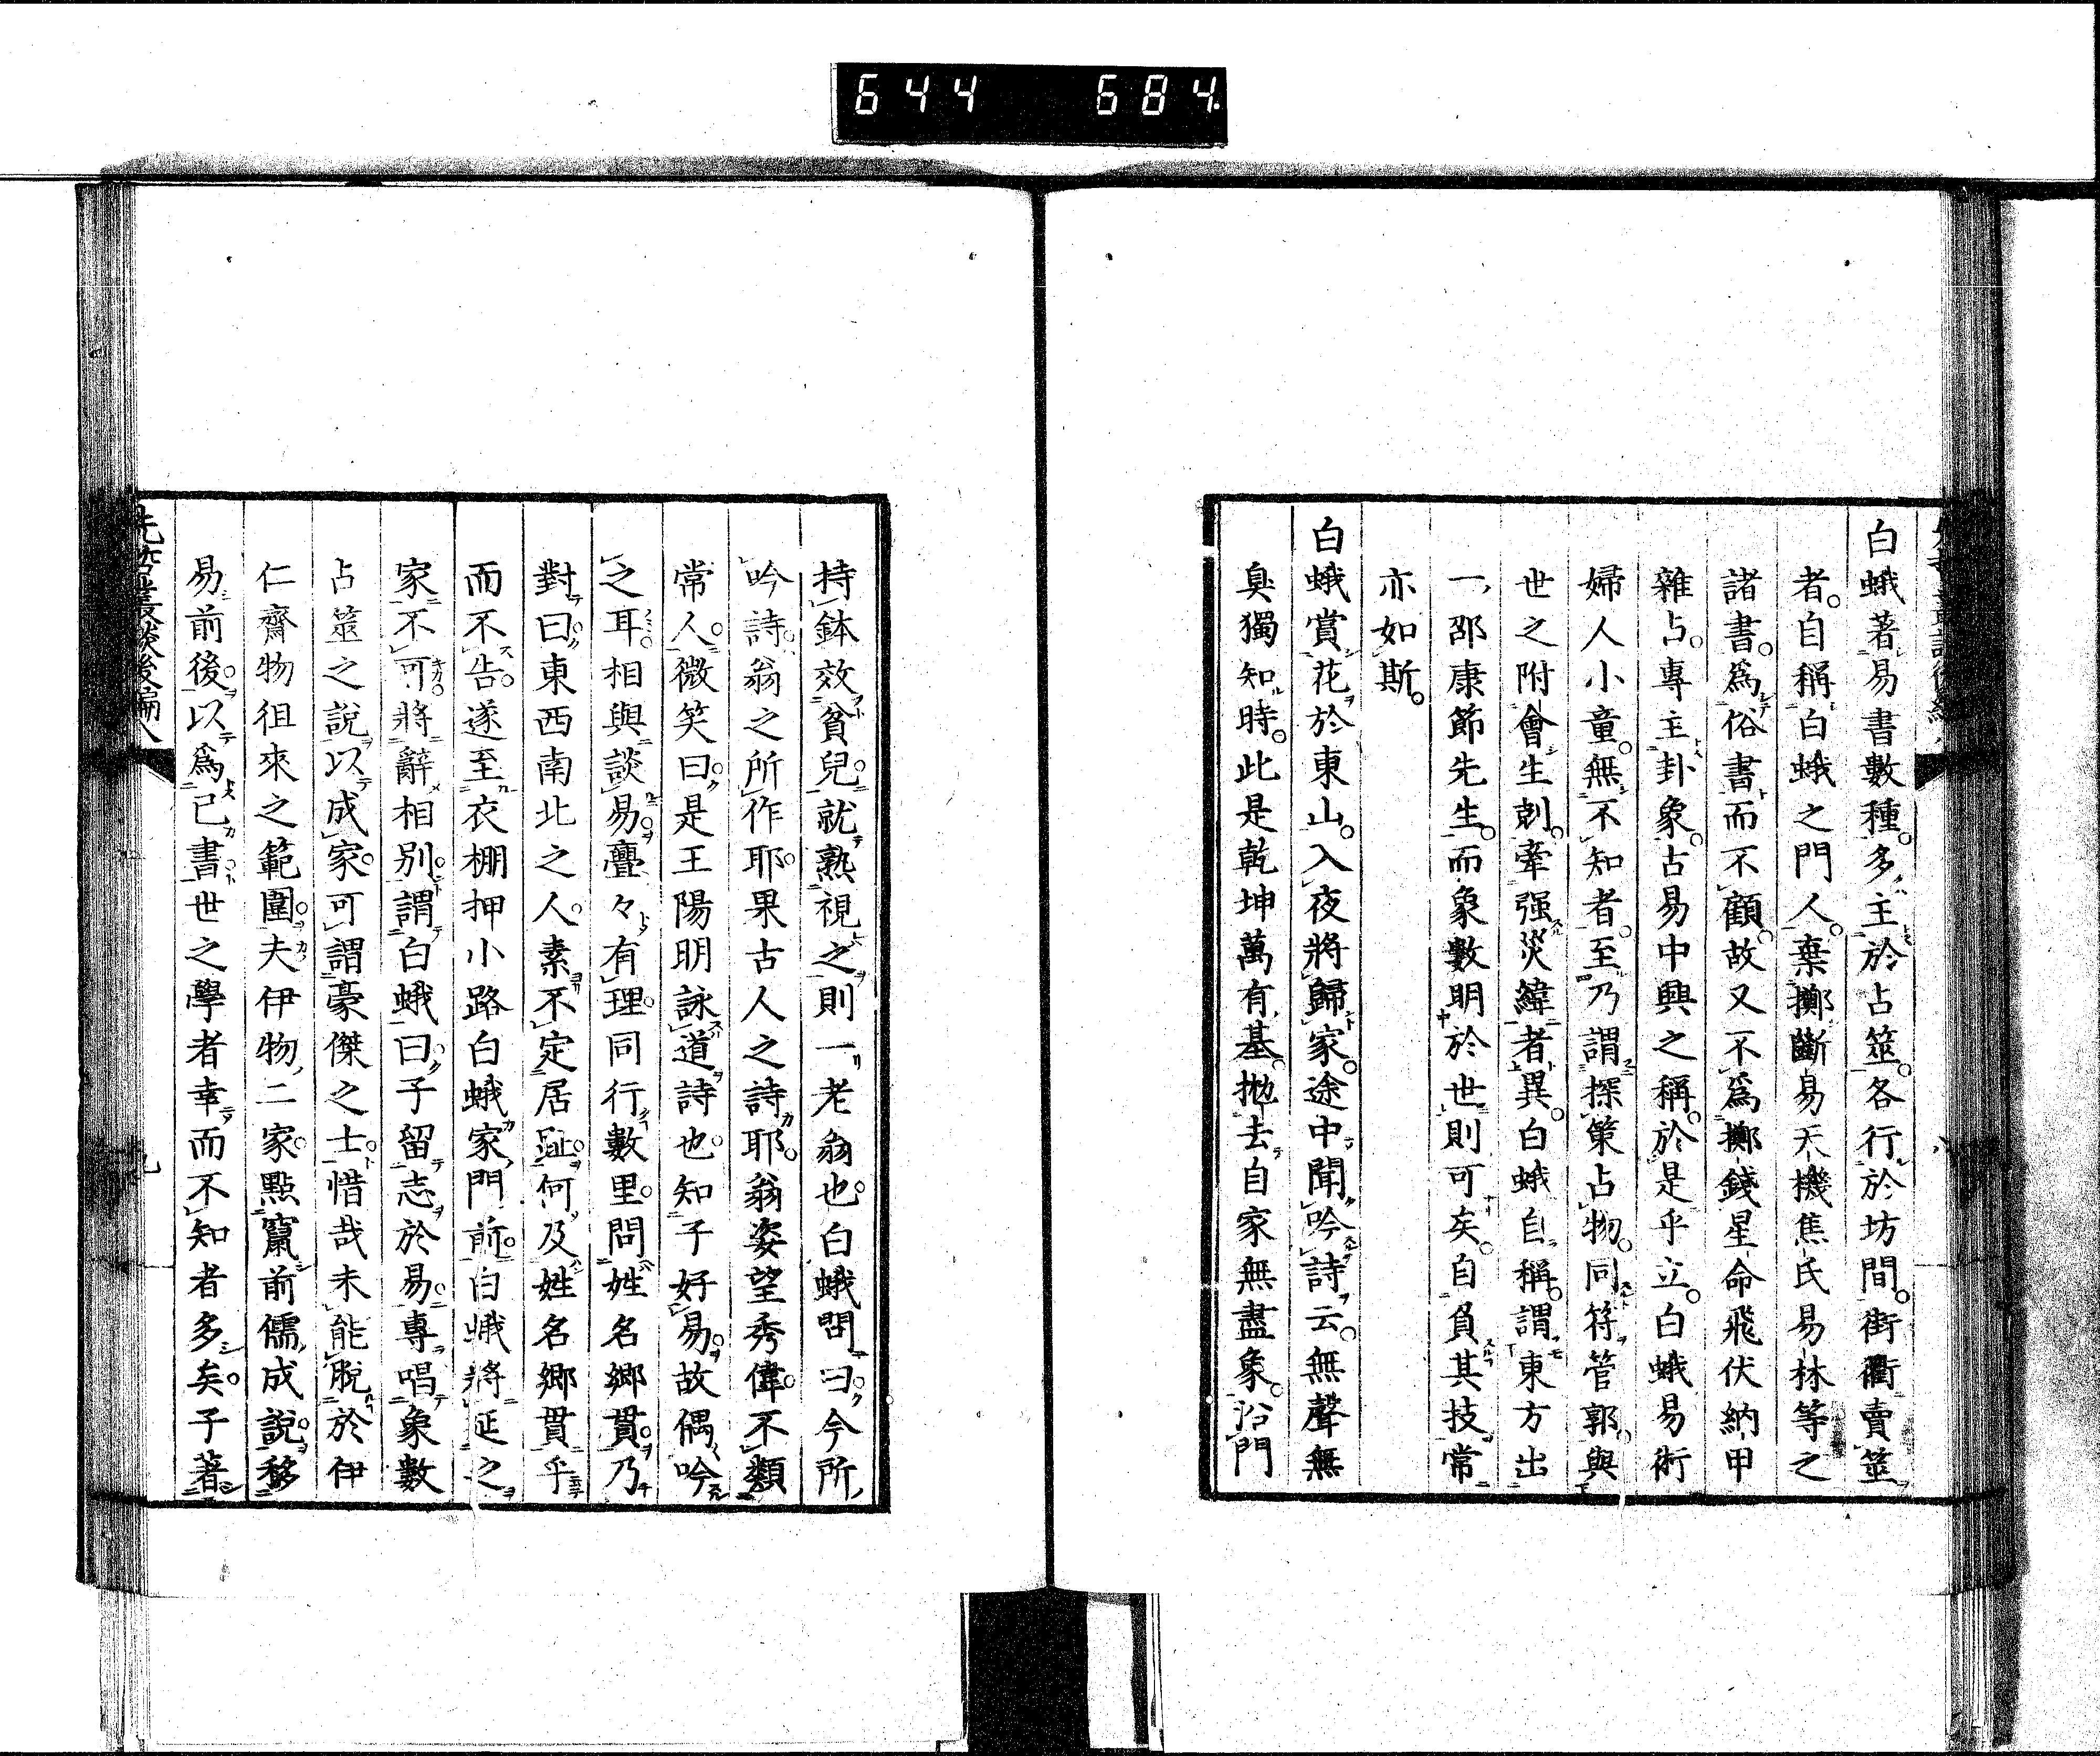 644 684
白蛾著易書數種。多主於占筮。各行於坊間。街衢賣筮
者。自稱白蛾之門人。棄擲斷易天機焦氏易林等之
諸書。爲俗書而不顧。故又不爲擲錢星命飛伏納甲
雜占。專主卦象。古易中興之稱。於是乎立。白蛾易術
婦人小童。無不知者。至乃謂探策占物。同符管郭。與
世之附會生剋。牽强災緯者異。白蛾自稱。謂東方出
一邵康節先生。而象數明於世則可矣。自負其技常
亦如斯。
白蛾賞花於東山。入夜將歸家。途中聞吟詩云。無聲無
臭獨知時。此是乾坤萬有基。拋去自家無盡象。沿門
持鉢效貧兒。就熟視之則一老翁也。白蛾問曰。今所
吟詩。翁之所作耶。果古人之詩耶。翁姿望秀偉。不類
常人。微笑曰。是王陽明詠道詩也。知子好易。故偶吟
之耳。相與談易。亹々有理。同行數里。問姓名鄉貫。乃
對曰。東西南北之人。素不定居址。何及姓名鄉貫乎
而不告。遂至衣棚押小路白蛾家門前。白蛾將延之
家。不可。將辭相別。謂白蛾曰。子留志於易。專唱象數
占筮之說。以成家。可謂豪傑之士。惜哉未能脫於伊
仁齋物徂來之範圍。夫伊物二家。點竄前儒。成說。移
易前後。以爲已書。世之學者幸而不知者多矣。子著
先哲叢談後編八
九